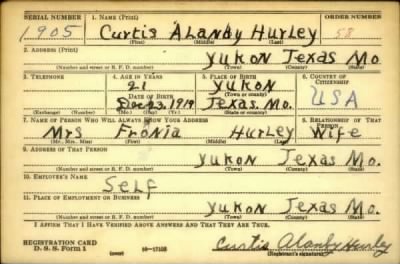 SERIAL NUMBER 1. NAME (Print) ORDER NUMBER
1905 Curtis Alandy Hurley 58
(First) (Middle) (Last)
2. ADDRESS (Print)
Yukon Texas Mo.
(Number and street or R. F. D. number) (Town) (County) (State)
3. TELEPHONE 4. AGE IN YEARS 5. PLACE OF BIRTH 6. COUNTRY OF CITIZENSHIP
21 Yukon
DATE OF BIRTH (Town or county) USA
Dec 23, 1919 Texas. Mo.
(Exchange) (Number) (Mo.) (Day) (Yr.) (State or country)
7. NAME OF PERSON WHO WILL ALWAYS KNOW YOUR ADDRESS 8. RELATIONSHIP OF THAT PERSON
Mrs Fronia Hurley Wife
(Mr., Mrs., Miss) (First) (Middle) (Last)
9. ADDRESS OF THAT PERSON
Yukon Texas Mo.
(Number and street or R. F. D. number) (Town) (County) (State)
10. EMPLOYER'S NAME
Self
11. PLACE OF EMPLOYMENT OR BUSINESS
Yukon Texas Mo.
(Number and street or R. F. D. number) (Town) (County) (State)
I AFFIRM THAT I HAVE VERIFIED ABOVE ANSWERS AND THAT THEY ARE TRUE.
REGISTRATION CARD
D. S. S. Form 1 (over) 16—17105 Curtis Alandy Hurley
(Registrant's signature)